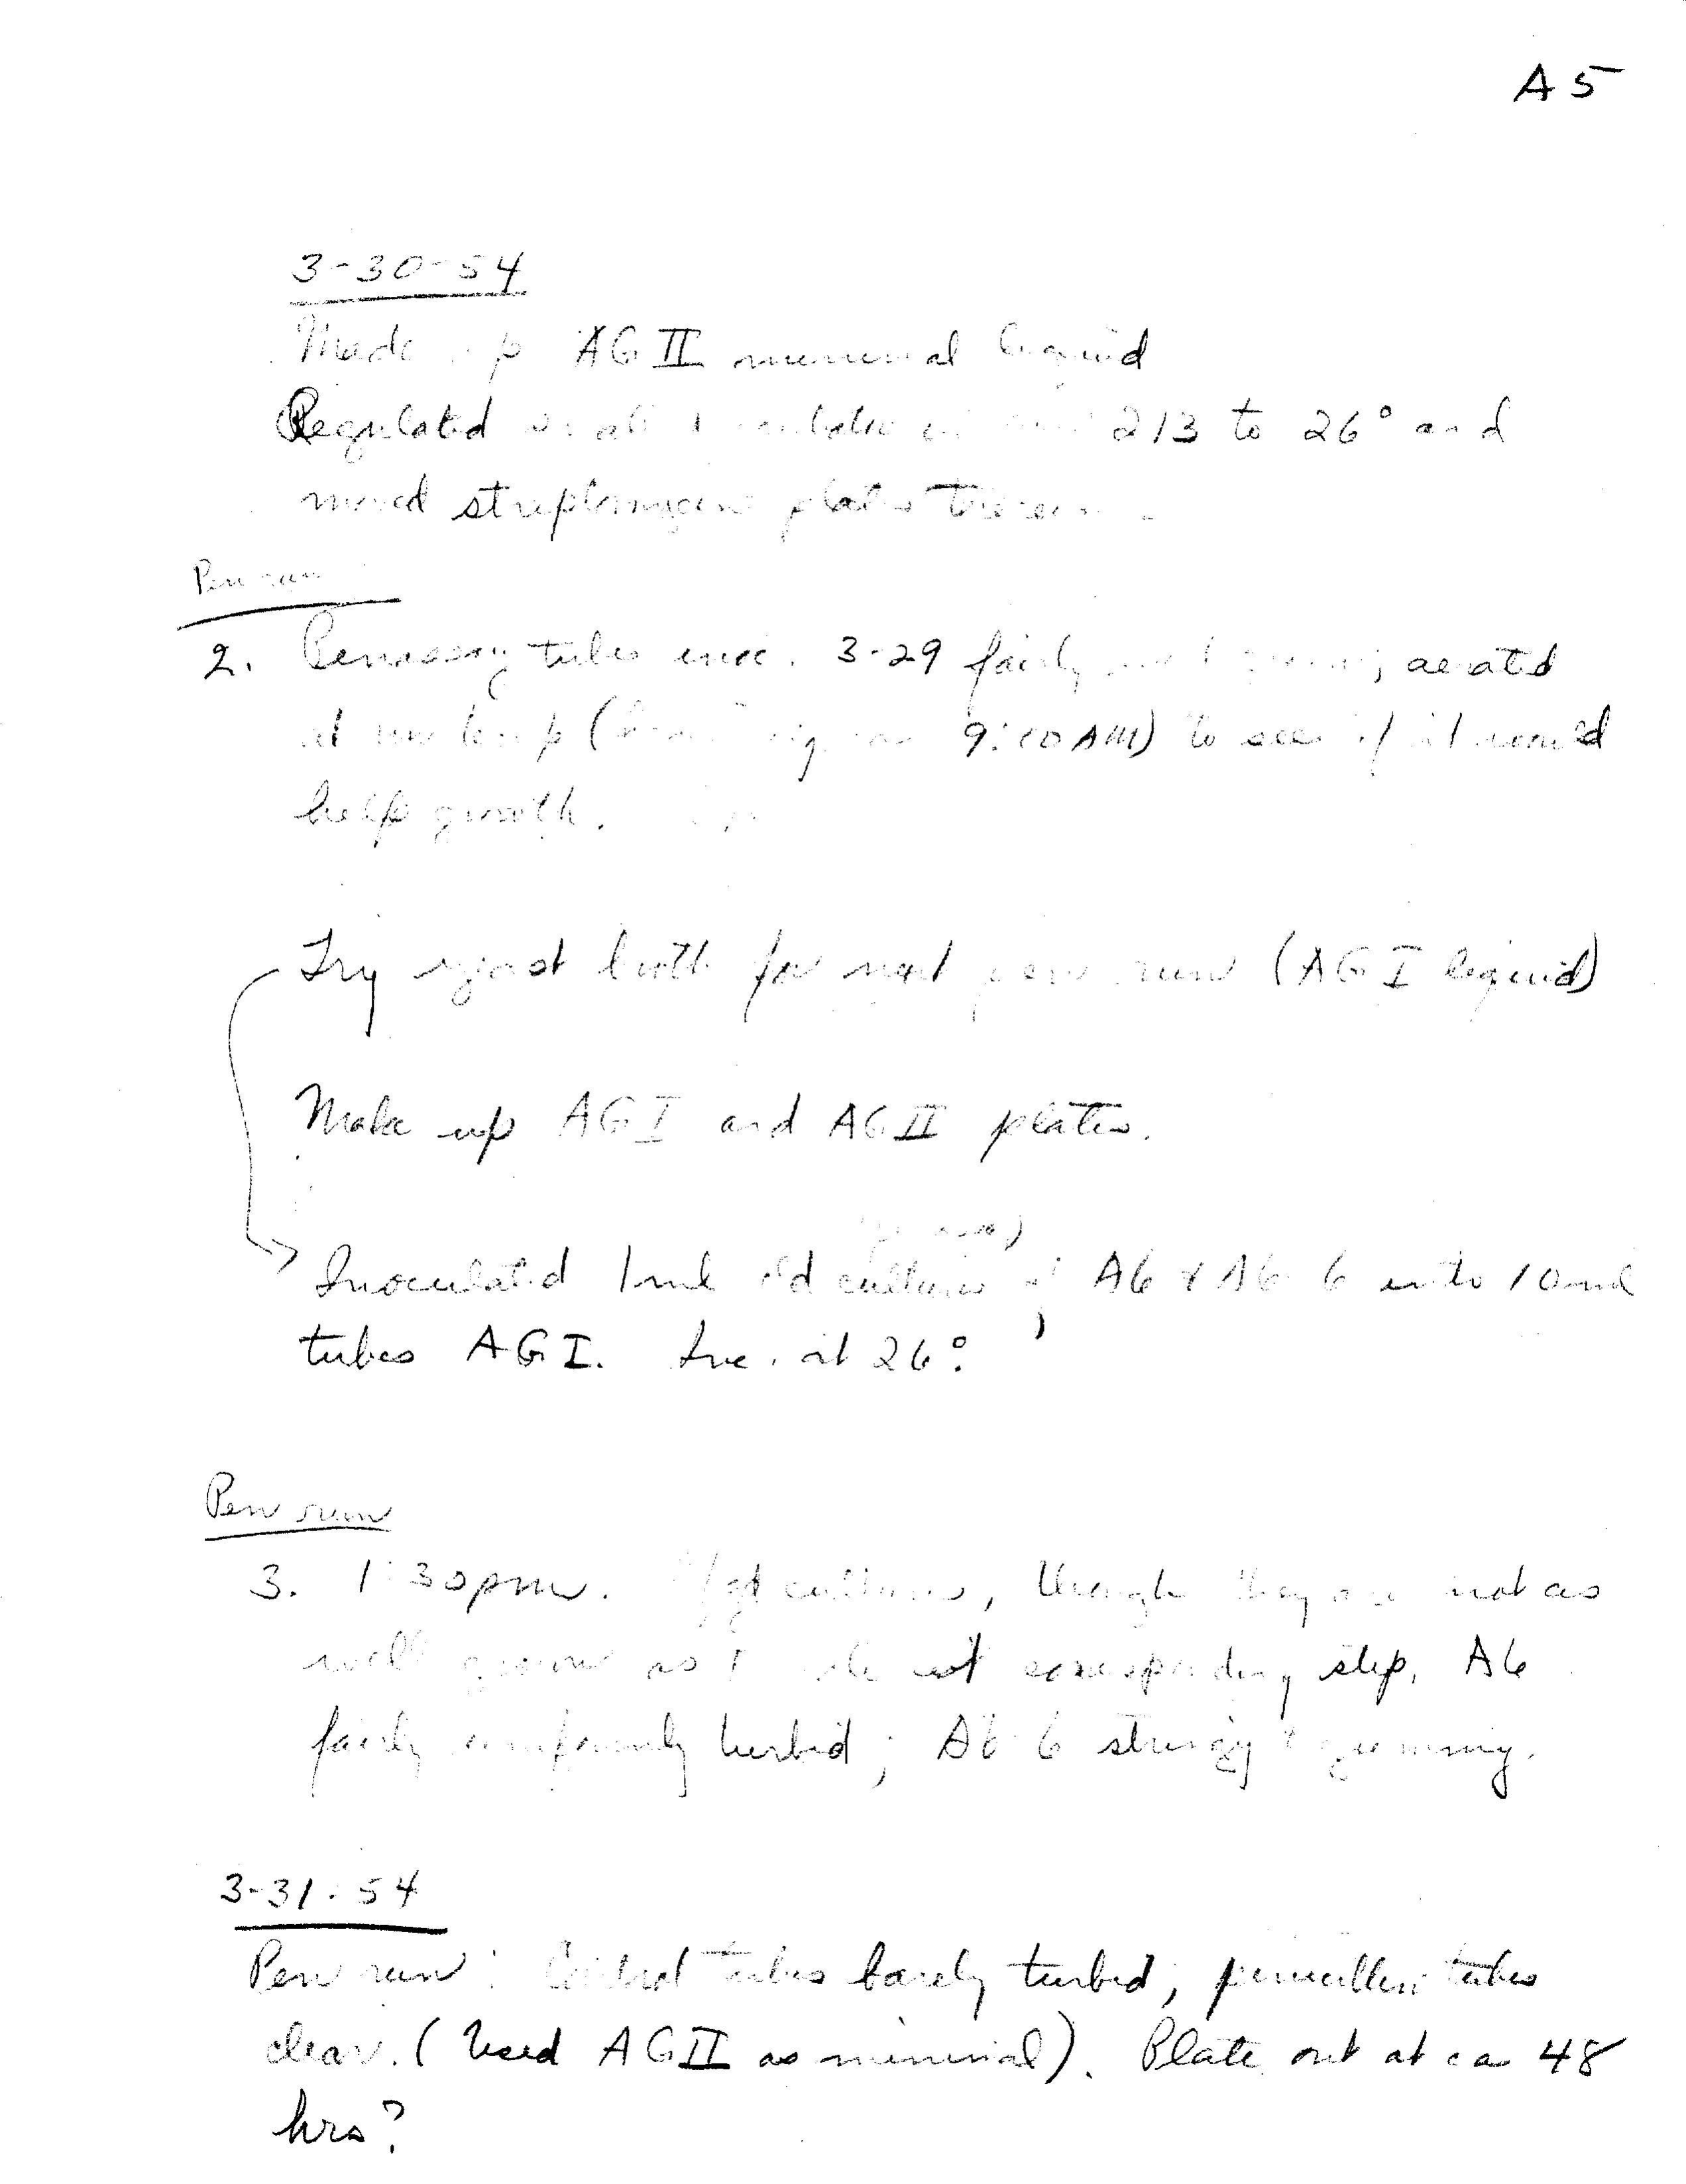 A5
3-30-54
Made up AG II minimal liquid
Regulated small incubator in 213 to 26° and
moved streptomycin plates therein.
Pen run
2. Penassay tubes inoc. 3-29 fairly well grown; aerated
at rm temp (9:10 AM) to see if it would
help growth.
Try yeast broth for next pen run (AG I liquid)
Make up AG I and AG II plates.
Inoculated 1 ml old cultures of A6 & A6-6 into 10 ml
tubes AG I. Inc. at 26°.
Pen run
3. 1:30 pm. cultures, though they are not as
well grown as corresponding step. A6
fairly uniformly turbid; A6-6 stringy & gummy.
3-31-54
Pen run: Control tubes barely turbid, penicillin tubes
clear. (Used AG II as minimal). Plate out at ca 48
hrs?